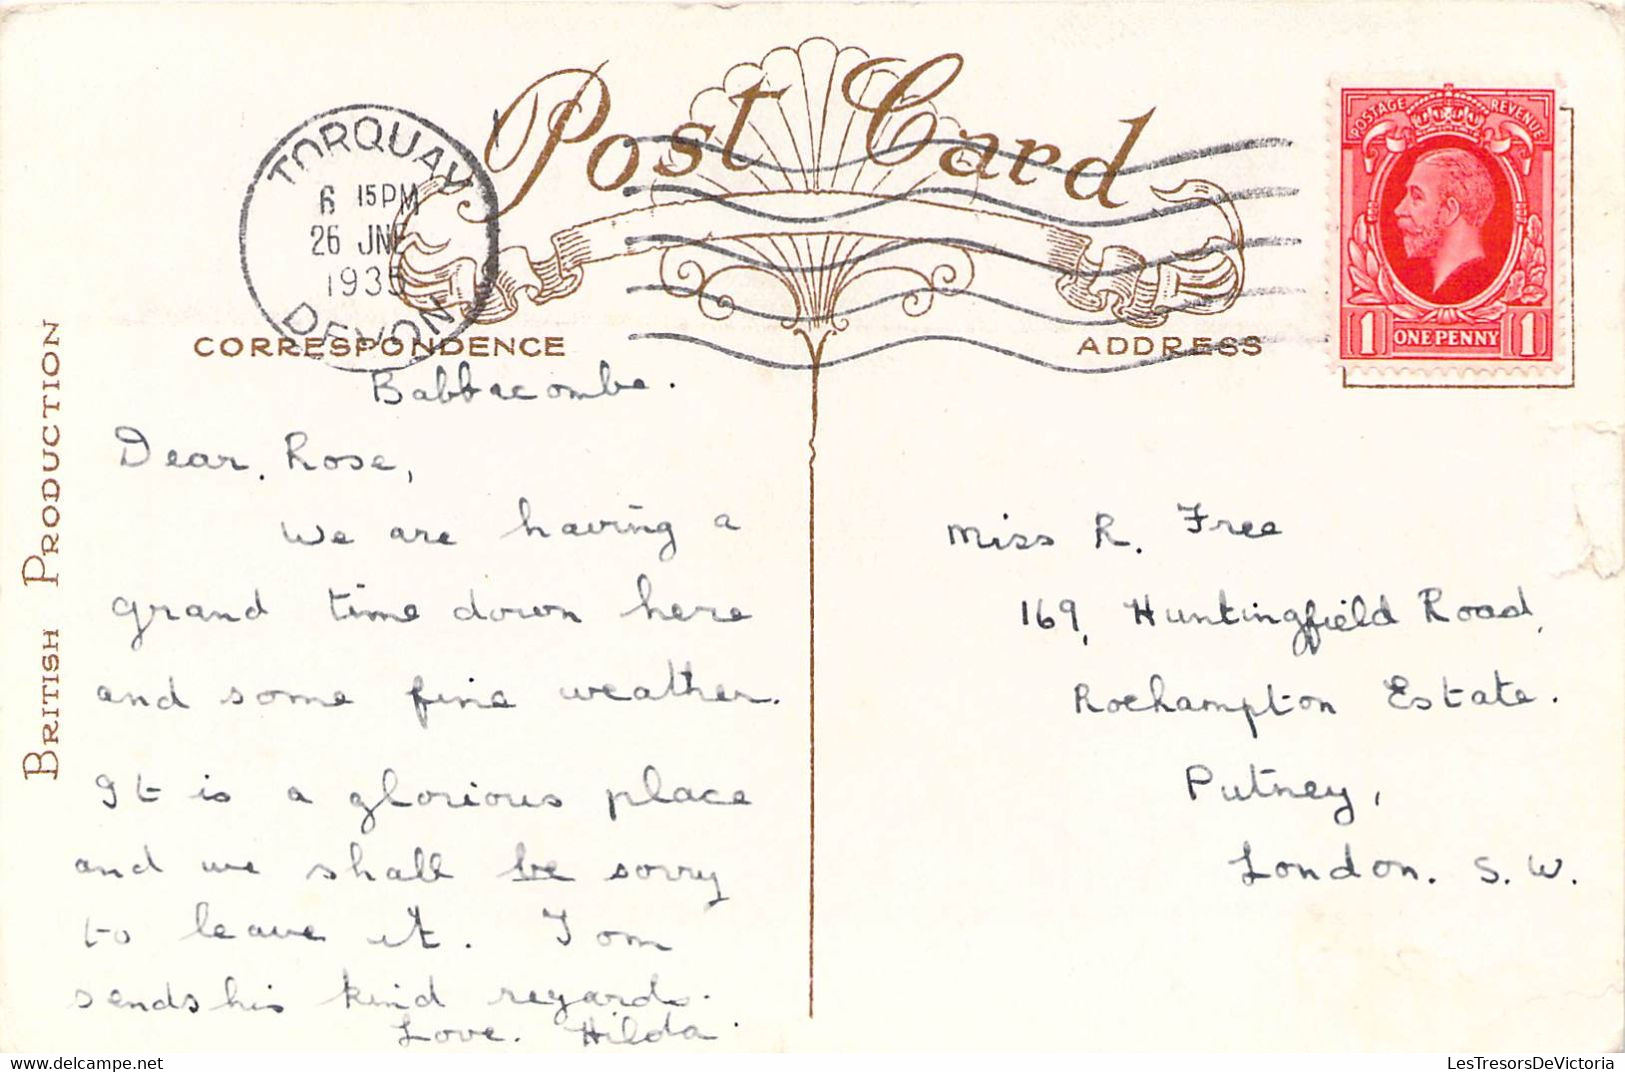 Post Card
TORQUAY
6 15PM
26 JNE
1935
DEVON
POSTAGE REVENUE
1 ONE PENNY 1
CORRESPONDENCE
ADDRESS
BRITISH PRODUCTION
Babbacombe.
Dear. Rose,
We are having a
grand time down here
and some fine weather.
It is a glorious place
and we shall be sorry
to leave it. Tom
sends his kind regards.
Love. Hilda.
Miss R. Free
169, Huntingfield Road,
Roehampton Estate.
Putney,
London. S. W.
LesTresorsDeVictoria